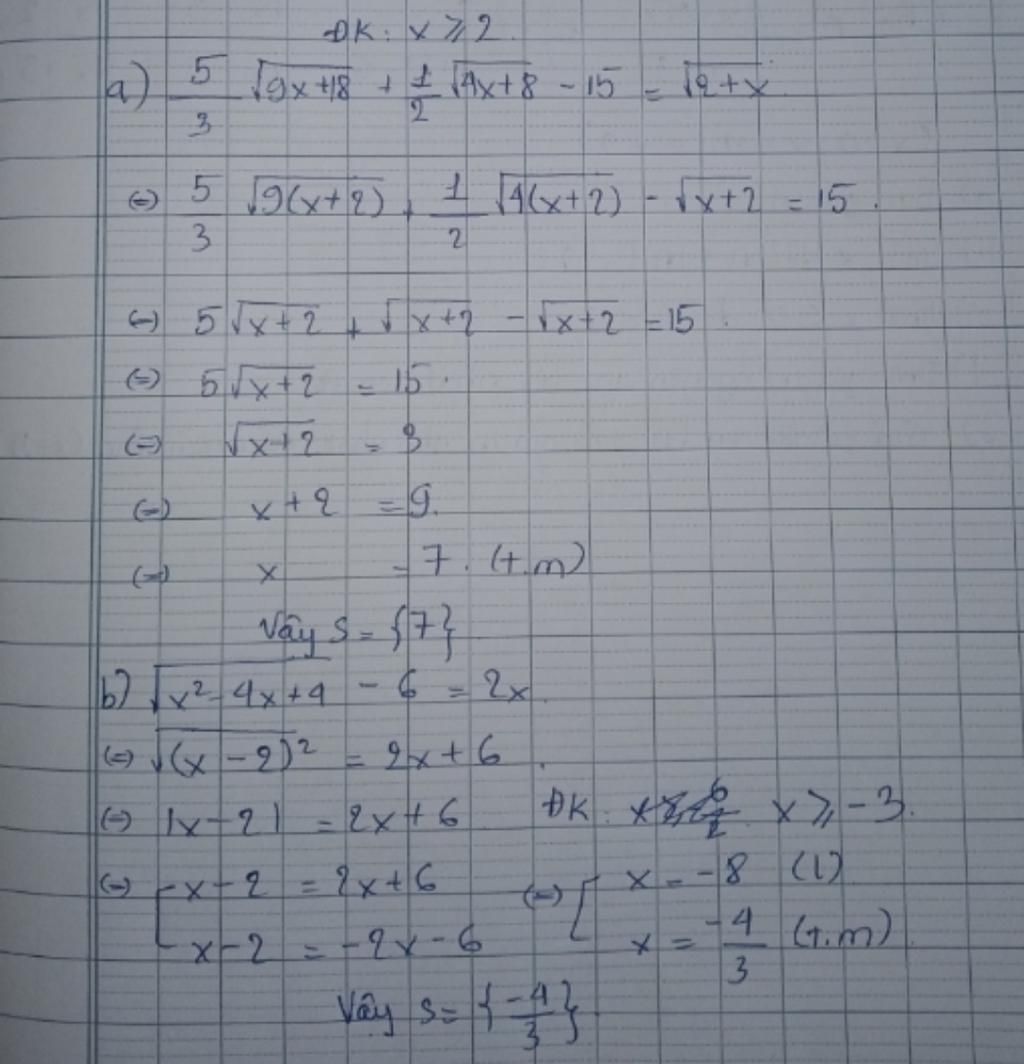 ĐK: x ≥ 2.
a) 5/3 √(9x+18) + 1/2 √(4x+8) - 15 = √(2+x)
(=) 5/3 √(9(x+2)) + 1/2 √(4(x+2)) - √(x+2) = 15.
(=) 5√(x+2) + √(x+2) - √(x+2) = 15.
(=) 5√(x+2) = 15.
(=) √(x+2) = 3
(=) x+2 = 9.
(=) x = 7. (t.m)
Vậy S = {7}
b) √(x²-4x+4) - 6 = 2x.
(=) √((x-2)²) = 2x+6.
(=) |x-2| = 2x+6 ĐK: x ≥ -3.
(=) [ x-2 = 2x+6 (=) [ x = -8 (l)
x-2 = -2x-6 x = -4/3 (t.m)
Vậy S = {-4/3}